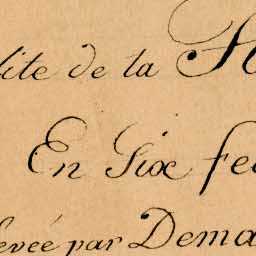 lite de la H
En Six fe
levée par Dema